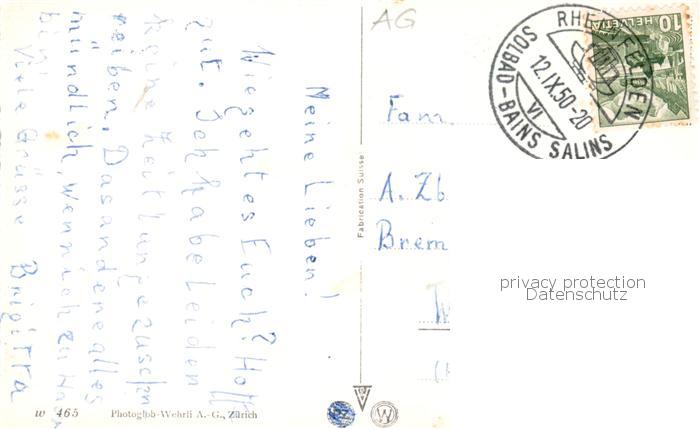 Meine Lieben!
Wie geht es Euch? Hoff
gut. Ich habe leider
keine Zeit lung zuschen
reiben. Das andere alles
mündlich, wenn ich zu Haus
bin!
Viele Grüsse Brigitta
AG
Fam.
A. Zb
Brem
RHEINFELDEN
12.IX.50-20
VI
SOLBAD-BAINS SALINS
HELVETIA
10
Fabrication Suisse
privacy protection
Datenschutz
W 465 Photoglob-Wehrli A.-G., Zürich